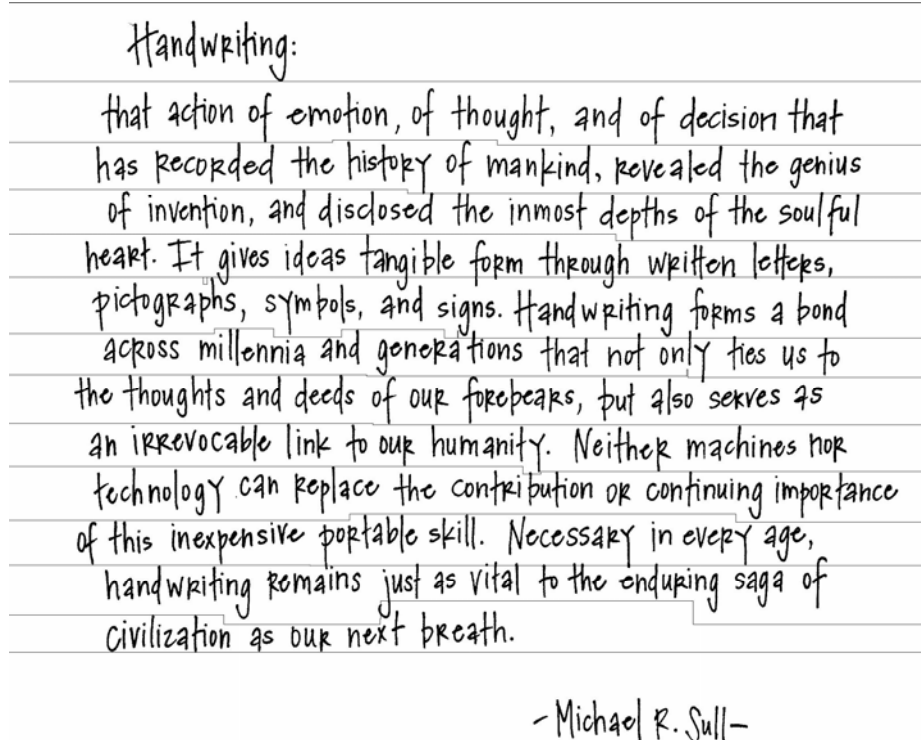 Handwriting:
that action of emotion, of thought, and of decision that
has recorded the history of mankind, revealed the genius
of invention, and disclosed the inmost depths of the soulful
heart. It gives ideas tangible form through written letters,
pictographs, symbols, and signs. Handwriting forms a bond
across millennia and generations that not only ties us to
the thoughts and deeds of our forebears, but also serves as
an irrevocable link to our humanity. Neither machines nor
technology can replace the contribution or continuing importance
of this inexpensive portable skill. Necessary in every age,
handwriting remains just as vital to the enduring saga of
civilization as our next breath.
- Michael R. Sull -